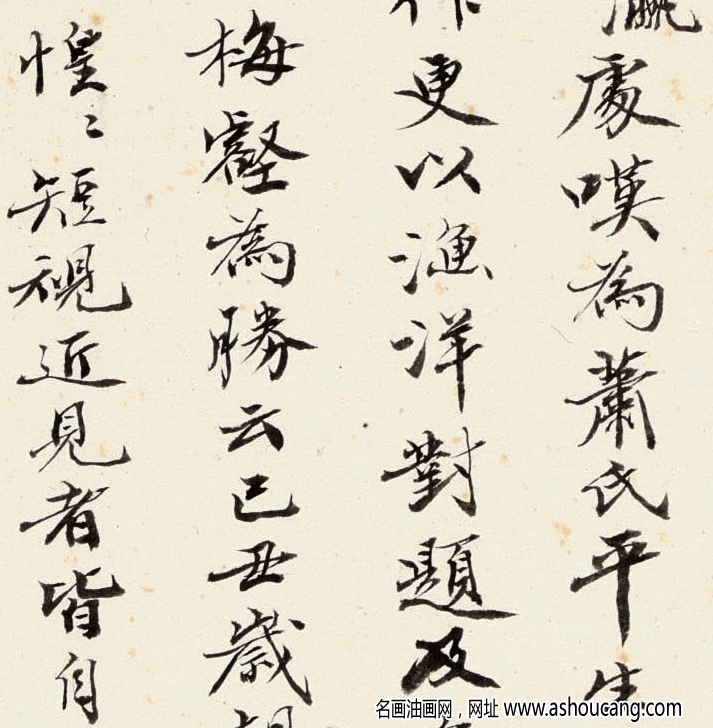 瀛處嘆為蕭氏平生
作更以漁洋對題及
梅壑為勝云己丑歲朝
惶〻短視近見者皆自
名画油画网，网址 www.ashoucang.com